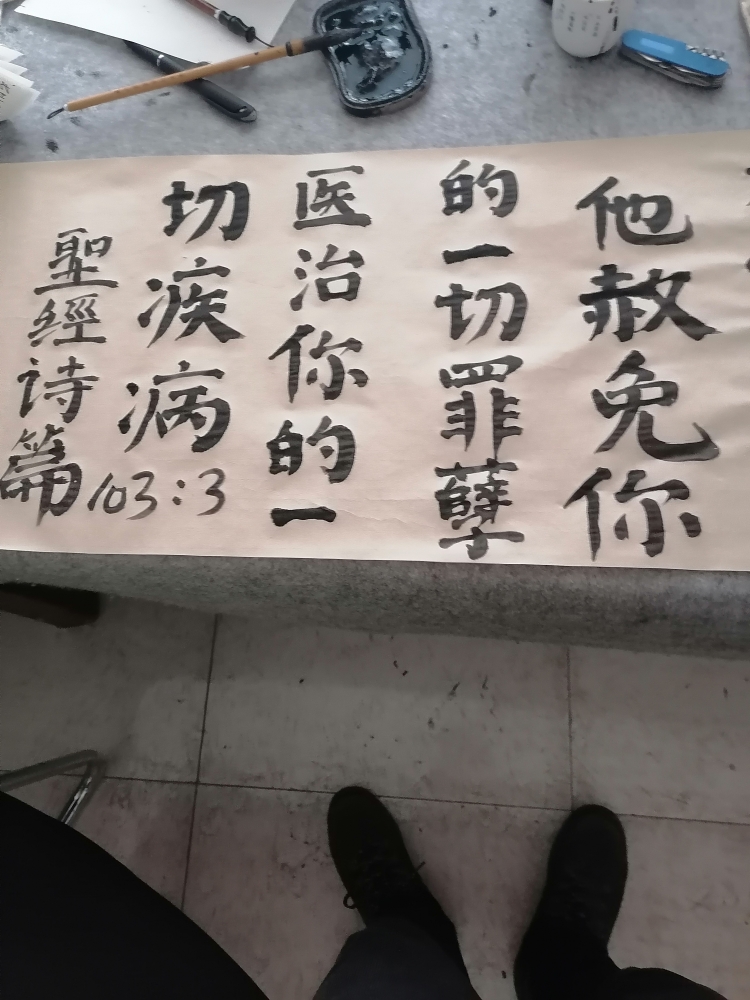 他赦免你
的一切罪孽
医治你的一
切疾病
103:3
聖經诗篇